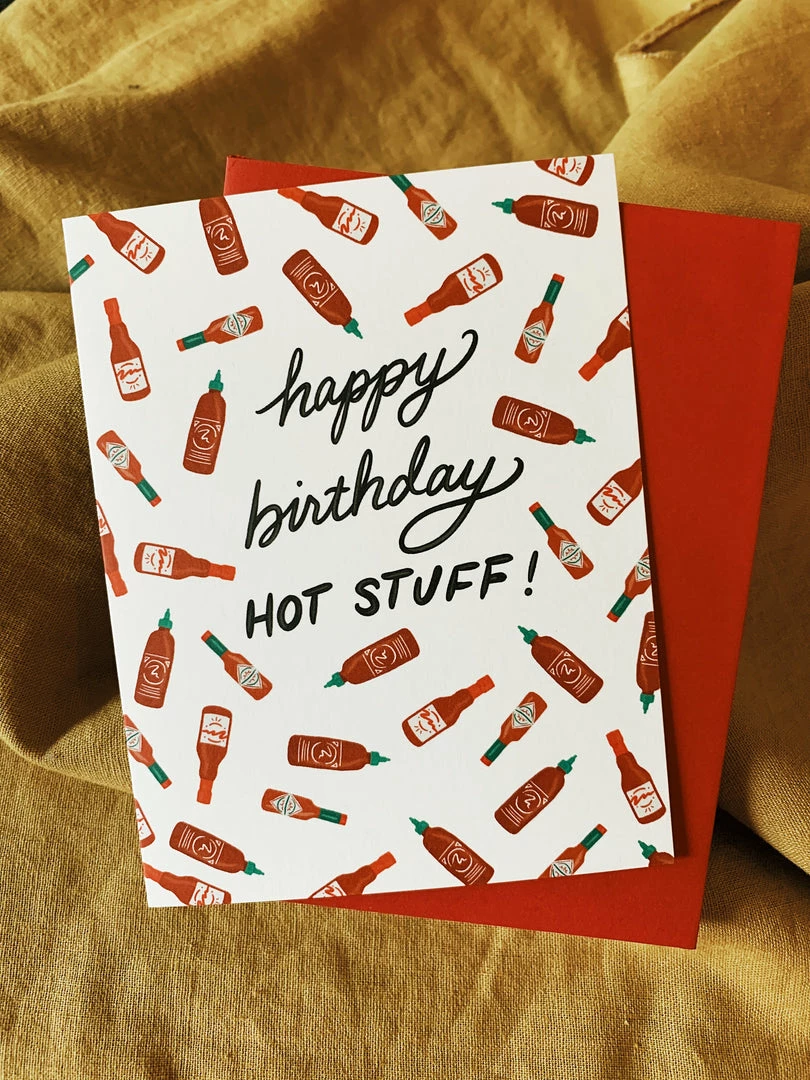 happy
birthday
HOT STUFF!